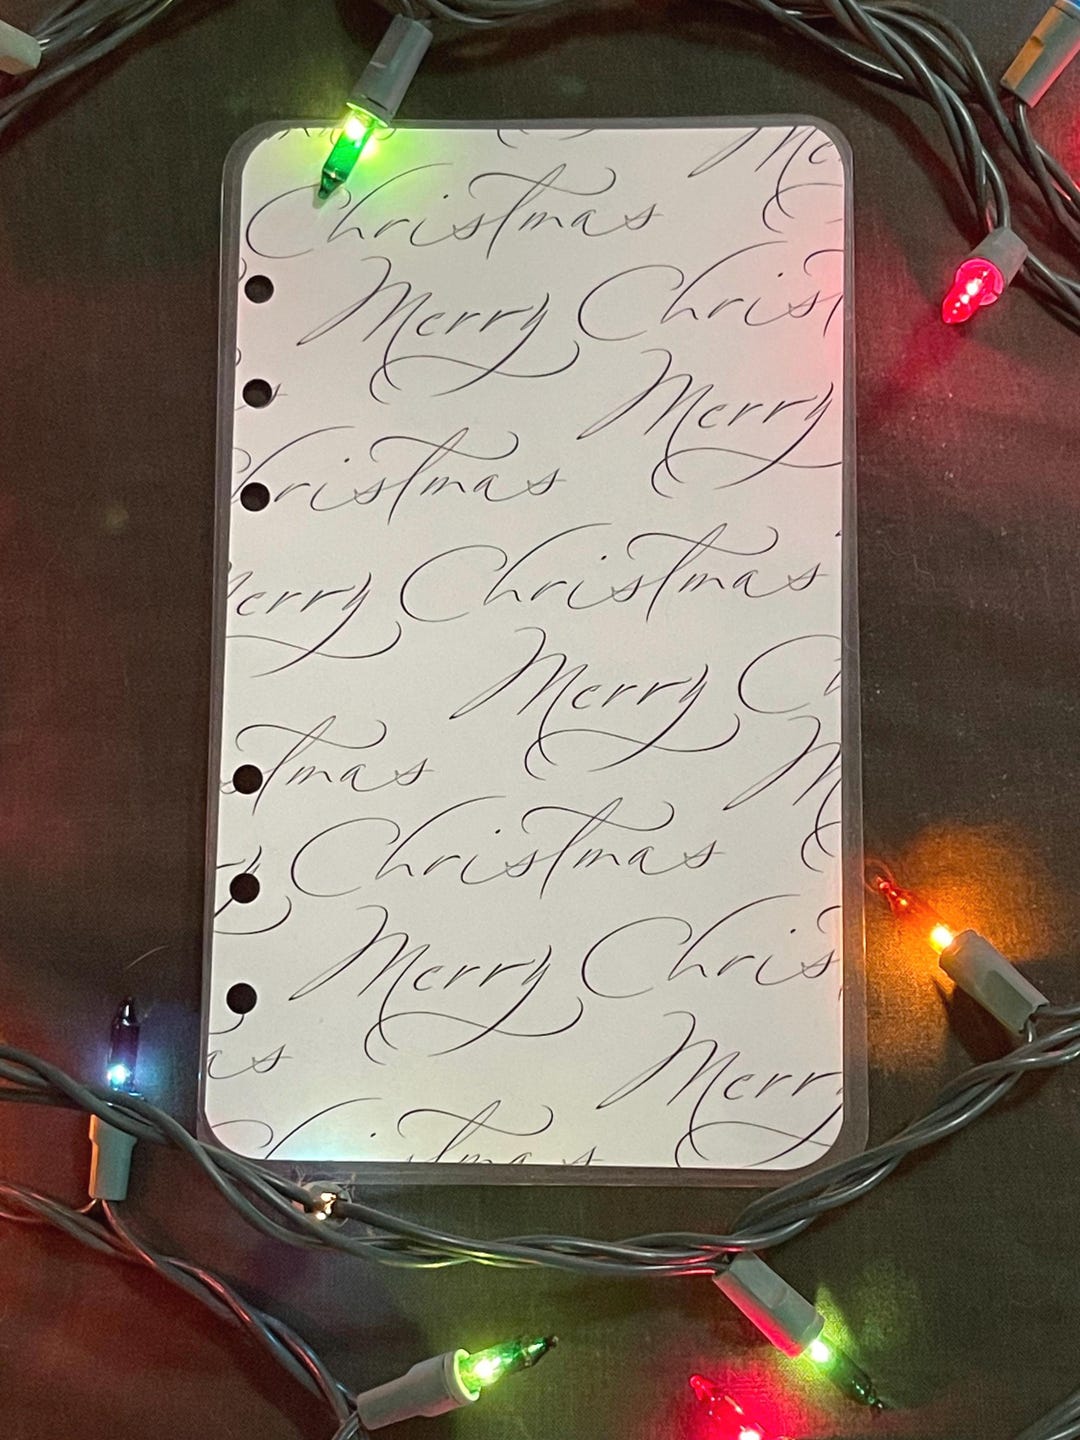 Me
Christmas
Merry Christ
Merry
Christmas
erry Christmas
Merry C
stmas
M
Christmas
Merry Chris
as
Merry
Christmas